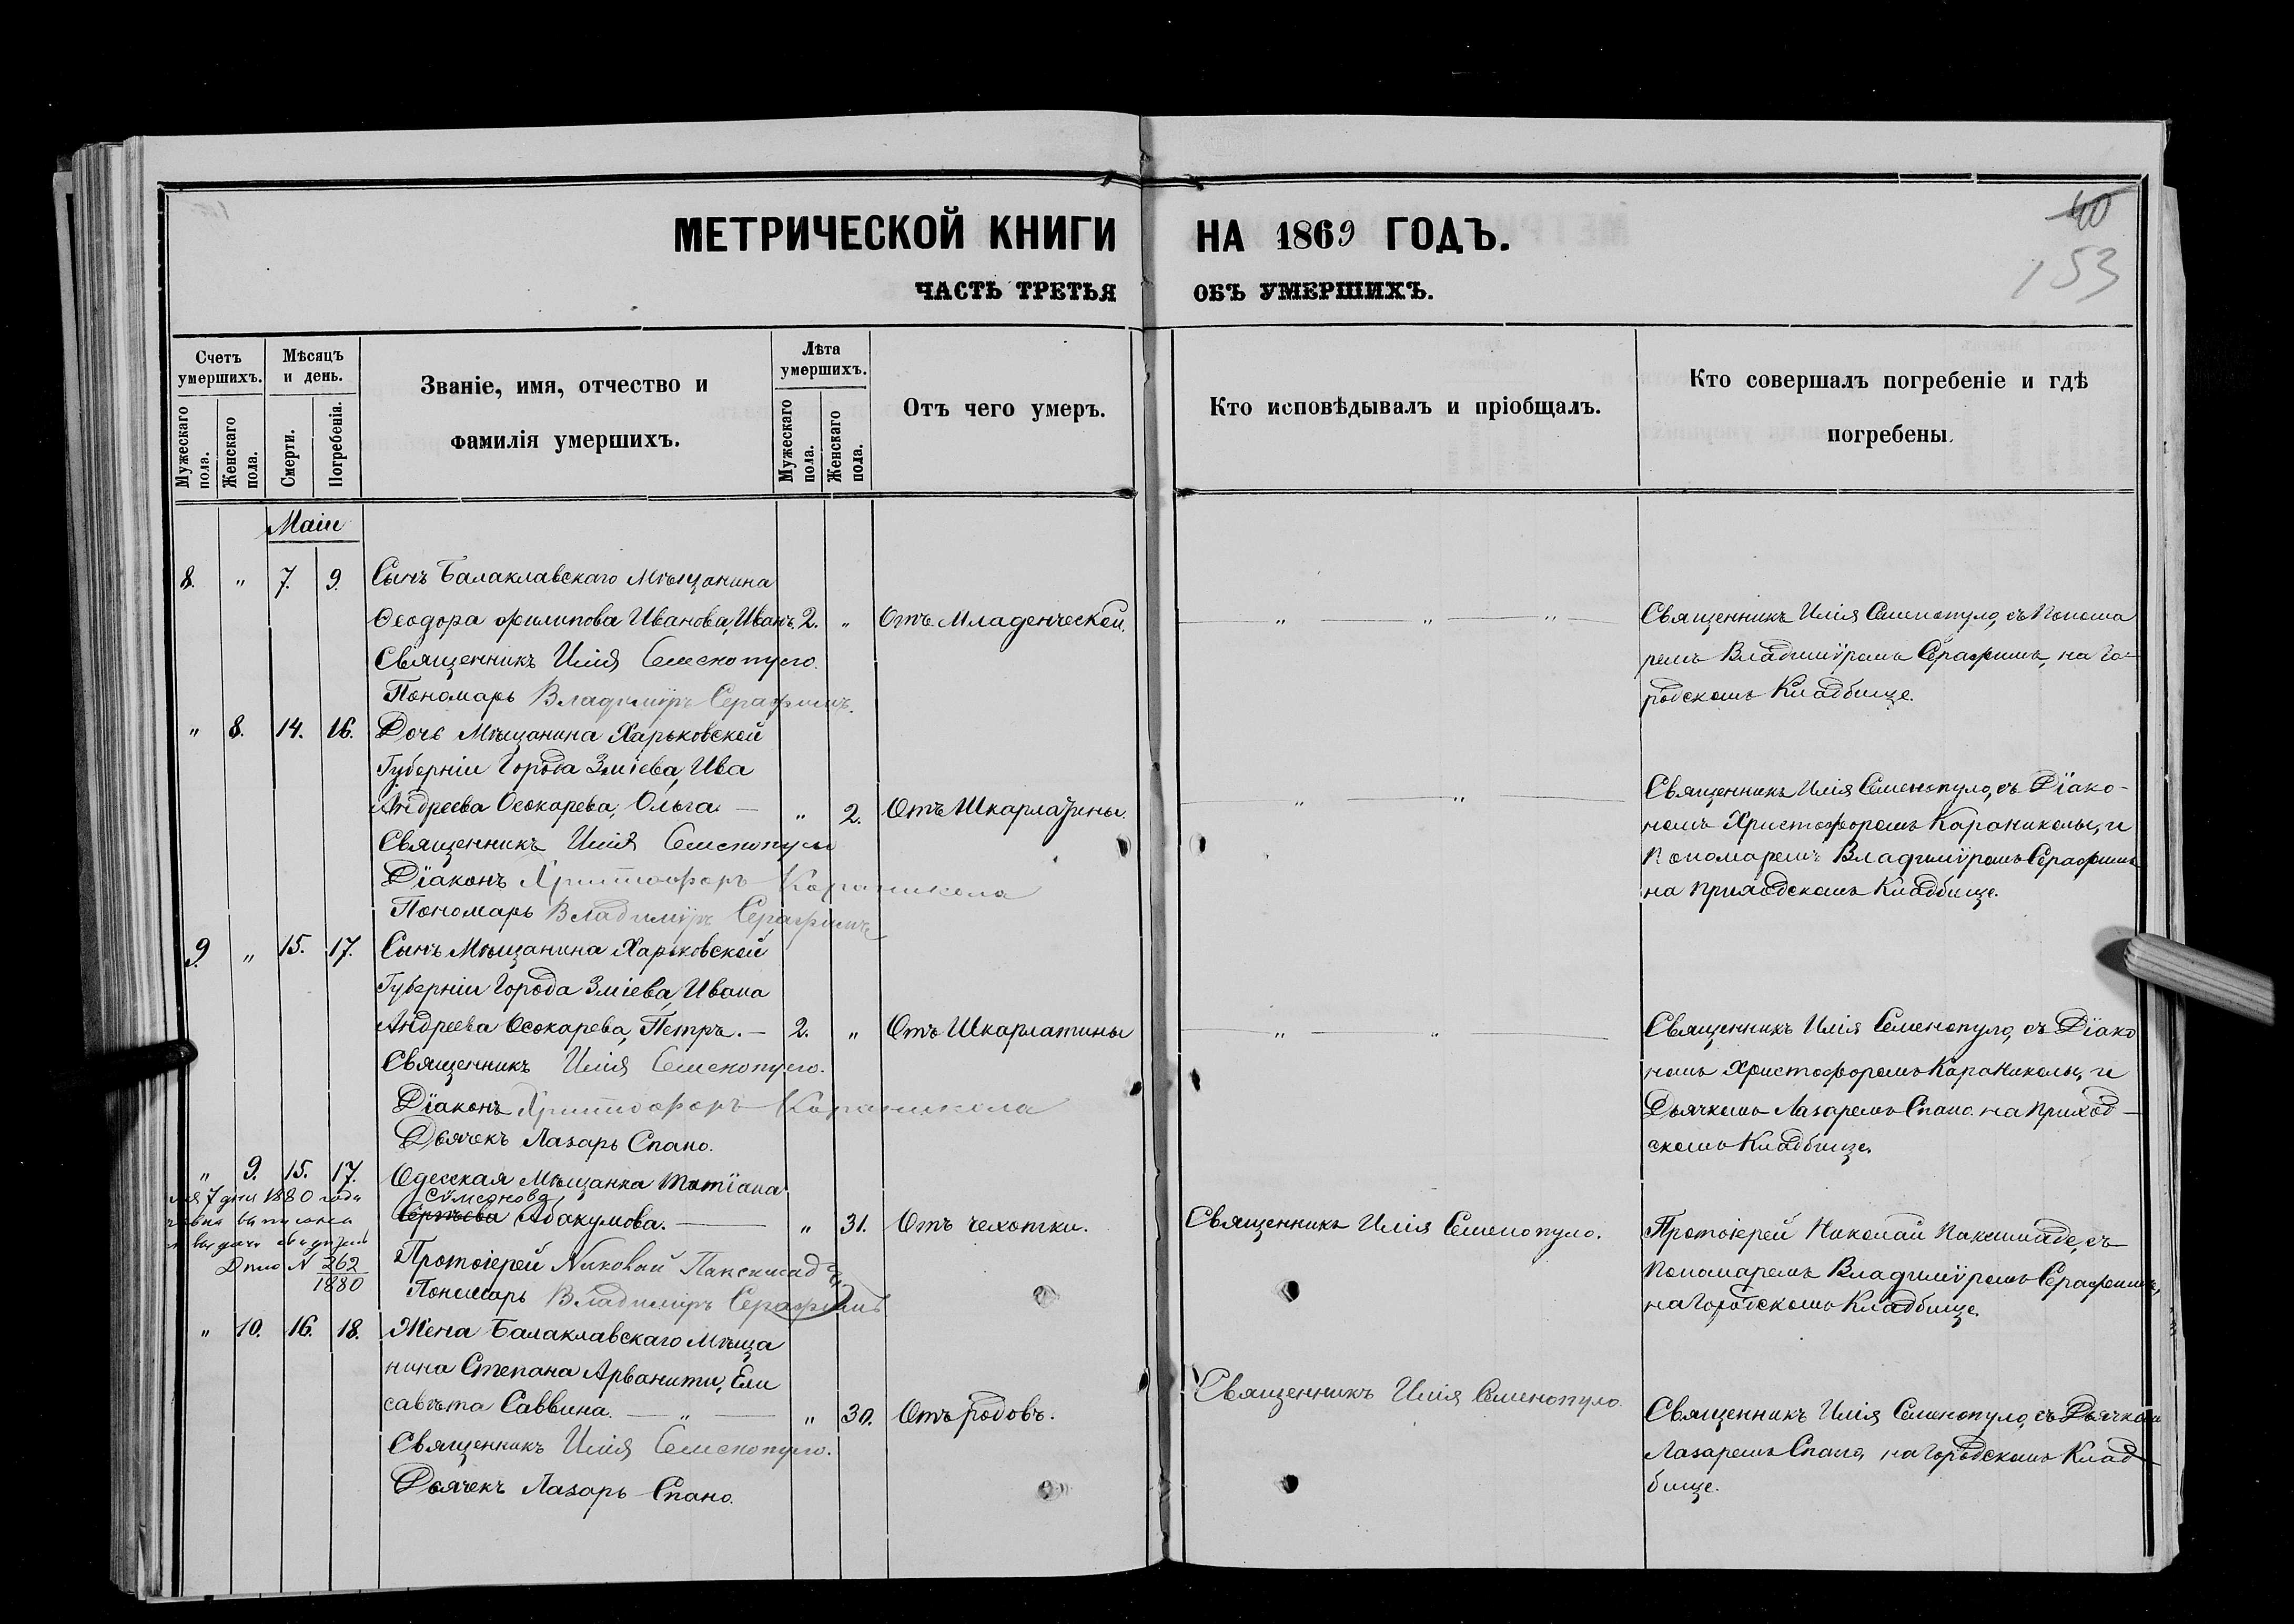 МЕТРИЧЕСКОЙ КНИГИ НА 1869 ГОДЪ.
40
153
ЧАСТЬ ТРЕТЬЯ ОБЪ УМЕРШИХЪ.
Счетъ умершихъ.
Мужескаго пола.
Женскаго пола.
Мѣсяцъ и день.
Смерти.
Погребенія.
Званіе, имя, отчество и
фамилія умершихъ.
Лѣта умершихъ.
Мужескаго пола.
Женскаго пола.
Отъ чего умеръ.
Кто исповѣдывалъ и пріобщалъ.
Кто совершалъ погребеніе и гдѣ
погребены.
Маіи
8. " 7. 9. Сынъ Балаклавскаго Мѣщанина
Ѳеодора Филипова Иванова, Иванъ. 2. " Отъ Младенческой. " " "
Священникъ Илія Семенопуло.
Пономарь Владиміръ Серафимъ.
Священникъ Илія Семенопуло, съ Понома
ремъ Владиміромъ Серафимъ, на Го-
родскомъ Кладбище.
" 8. 14. 16. Дочь Мѣщанина Харьковской
Губерніи Города Зміева, Ива
Андреева Осокарева, Ольга. — " 2. Отъ Шкарлатины. " "
Священникъ Илія Семенопуло
Діаконъ Христофоръ Караникола
Пономарь Владиміръ Серафимъ
Священникъ Илія Семенопуло, съ Діако-
номъ Христофоромъ Караниколы, и
Пономаремъ Владиміромъ Серафимъ
на Приходскомъ Кладбище.
9. " 15. 17. Сынъ Мѣщанина Харьковской
Губерніи Города Зміева, Ивана
Андреева Осокарева, Петръ. — 2. " Отъ Шкарлатины " "
Священникъ Илія Семенопуло.
Діаконъ Христофоръ Караникола
Дьячекъ Лазарь Спано.
Священникъ Илія Семенопуло, съ Діако
номъ Христофоромъ Караниколы, и
Дьячкомъ Лазаремъ Спано на Приход-
скомъ Кладбище.
" 9. 15. 17. Одесская Мѣщанка Татіана
Симеонова
Абакумова. — " 31. Отъ чехотки. Священникъ Илія Семенопуло.
7 дня 1880 года
Дѣло № 262
1880
Протоіерей Николай Паксимаде
Пономарь Владиміръ Серафимъ
Протоіерей Николай Паксимаде, съ
Пономаремъ Владиміромъ Серафимъ,
на Городскомъ Кладбище.
" 10. 16. 18. Жена Балаклавскаго Мѣща
нина Степана Арванити, Ели
савѣта Саввина. — " — " 30. Отъ родовъ. Священникъ Илія Семенопуло.
Священникъ Илія Семенопуло.
Дьячекъ Лазарь Спано.
Священникъ Илія Семенопуло, съ Дьячкомъ
Лазаремъ Спано, на Городскомъ Клад
бище.